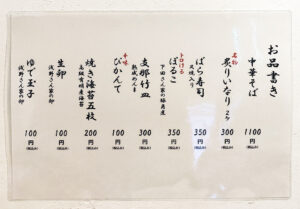 お品書き
中華そば 1100円(税込み)
名物
炙りいなり 2ヶ 300円(税込み)
ばら寿司 350円(税込み)
叉焼入り
トロける
ばるこ 350円(税込み)
下田さん家の豚角煮
支那竹皿 300円(税込み)
熟成めんま
十味
ぴかんて 100円(税込み)
焼き海苔五枚 200円(税込み)
高級有明産海苔
生卵 100円(税込み)
浅野さん家の卵
ゆで玉子 100円(税込み)
浅野さん家の卵